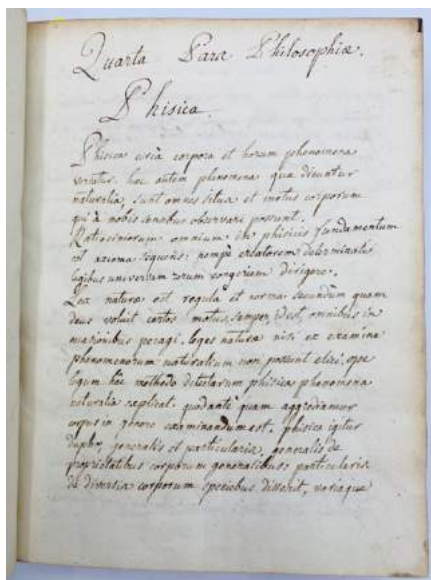 Quarta Pars Philosophiæ.
Phisica
Phisica circà corpora et horum phenomena
versatur. hoc autem phenomena quæ dicuntur
naturalia, sunt omnes situs et motus corporum
qui à nobis sensibus observari possunt.
Ratiociniorum omnium in phisicis fundamentum
est axioma sequens: nempè creatorem determinatis
legibus universam rerum congeriem dirigere.
Lex naturæ est regula et norma secundum quam
deus voluit certos motus semper, idest omnibus in
peragi. leges naturæ nisi ex examine
phenomenorum naturalium non possunt elici, ope
legum hâc methodo detectarum phisica phenomena
naturalia explicat. quod antè quam aggrediamur
corpus in genere examinandum est. phisica igitur
duplex, generalis et particularis, generalis de
proprietatibus corporum generalibus, particularis
de diversis corporum speciebus disserit, variaque